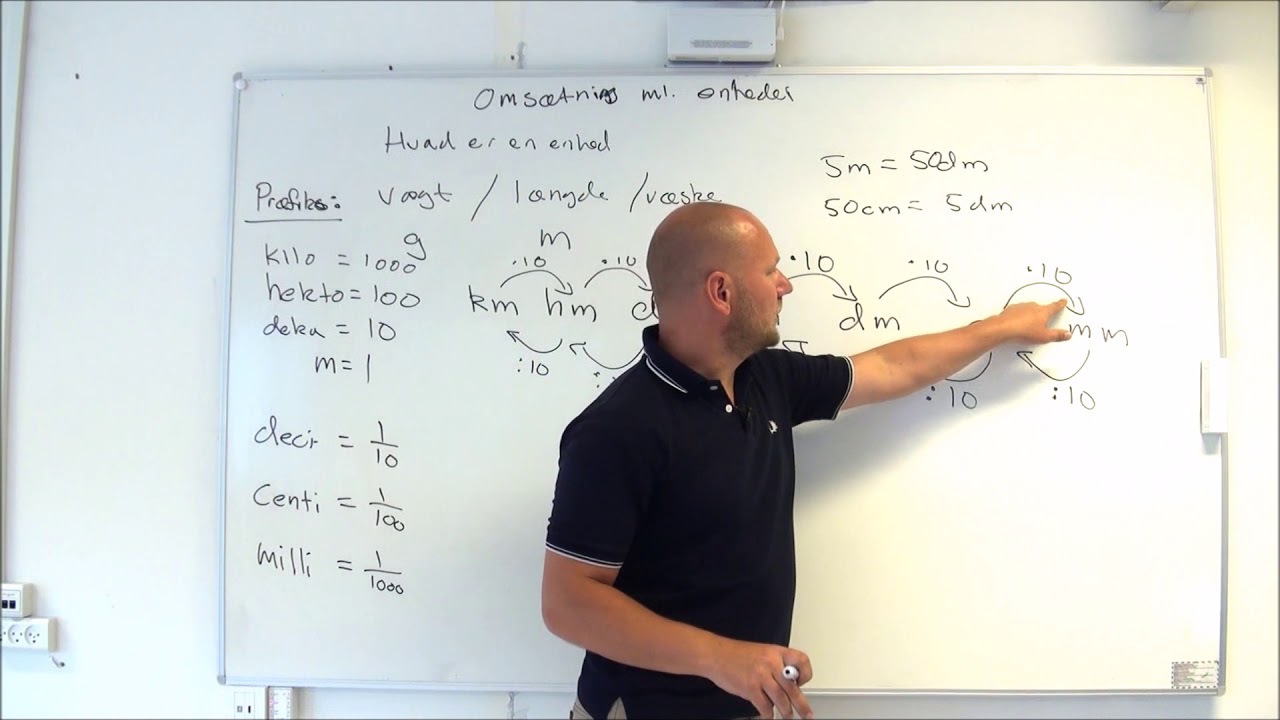 Omsætning ml. enheder
Hvad er en enhed
Præfiks: vægt / længde / væske
5m = 50dm
50cm = 5dm
g
m
kilo = 1000
hekto = 100
deka = 10
m = 1
·10 ·10 ·10 ·10 ·10
km hm d dm mm
:10 : :10 :10
decir = 1/10
Centi = 1/100
Milli = 1/1000